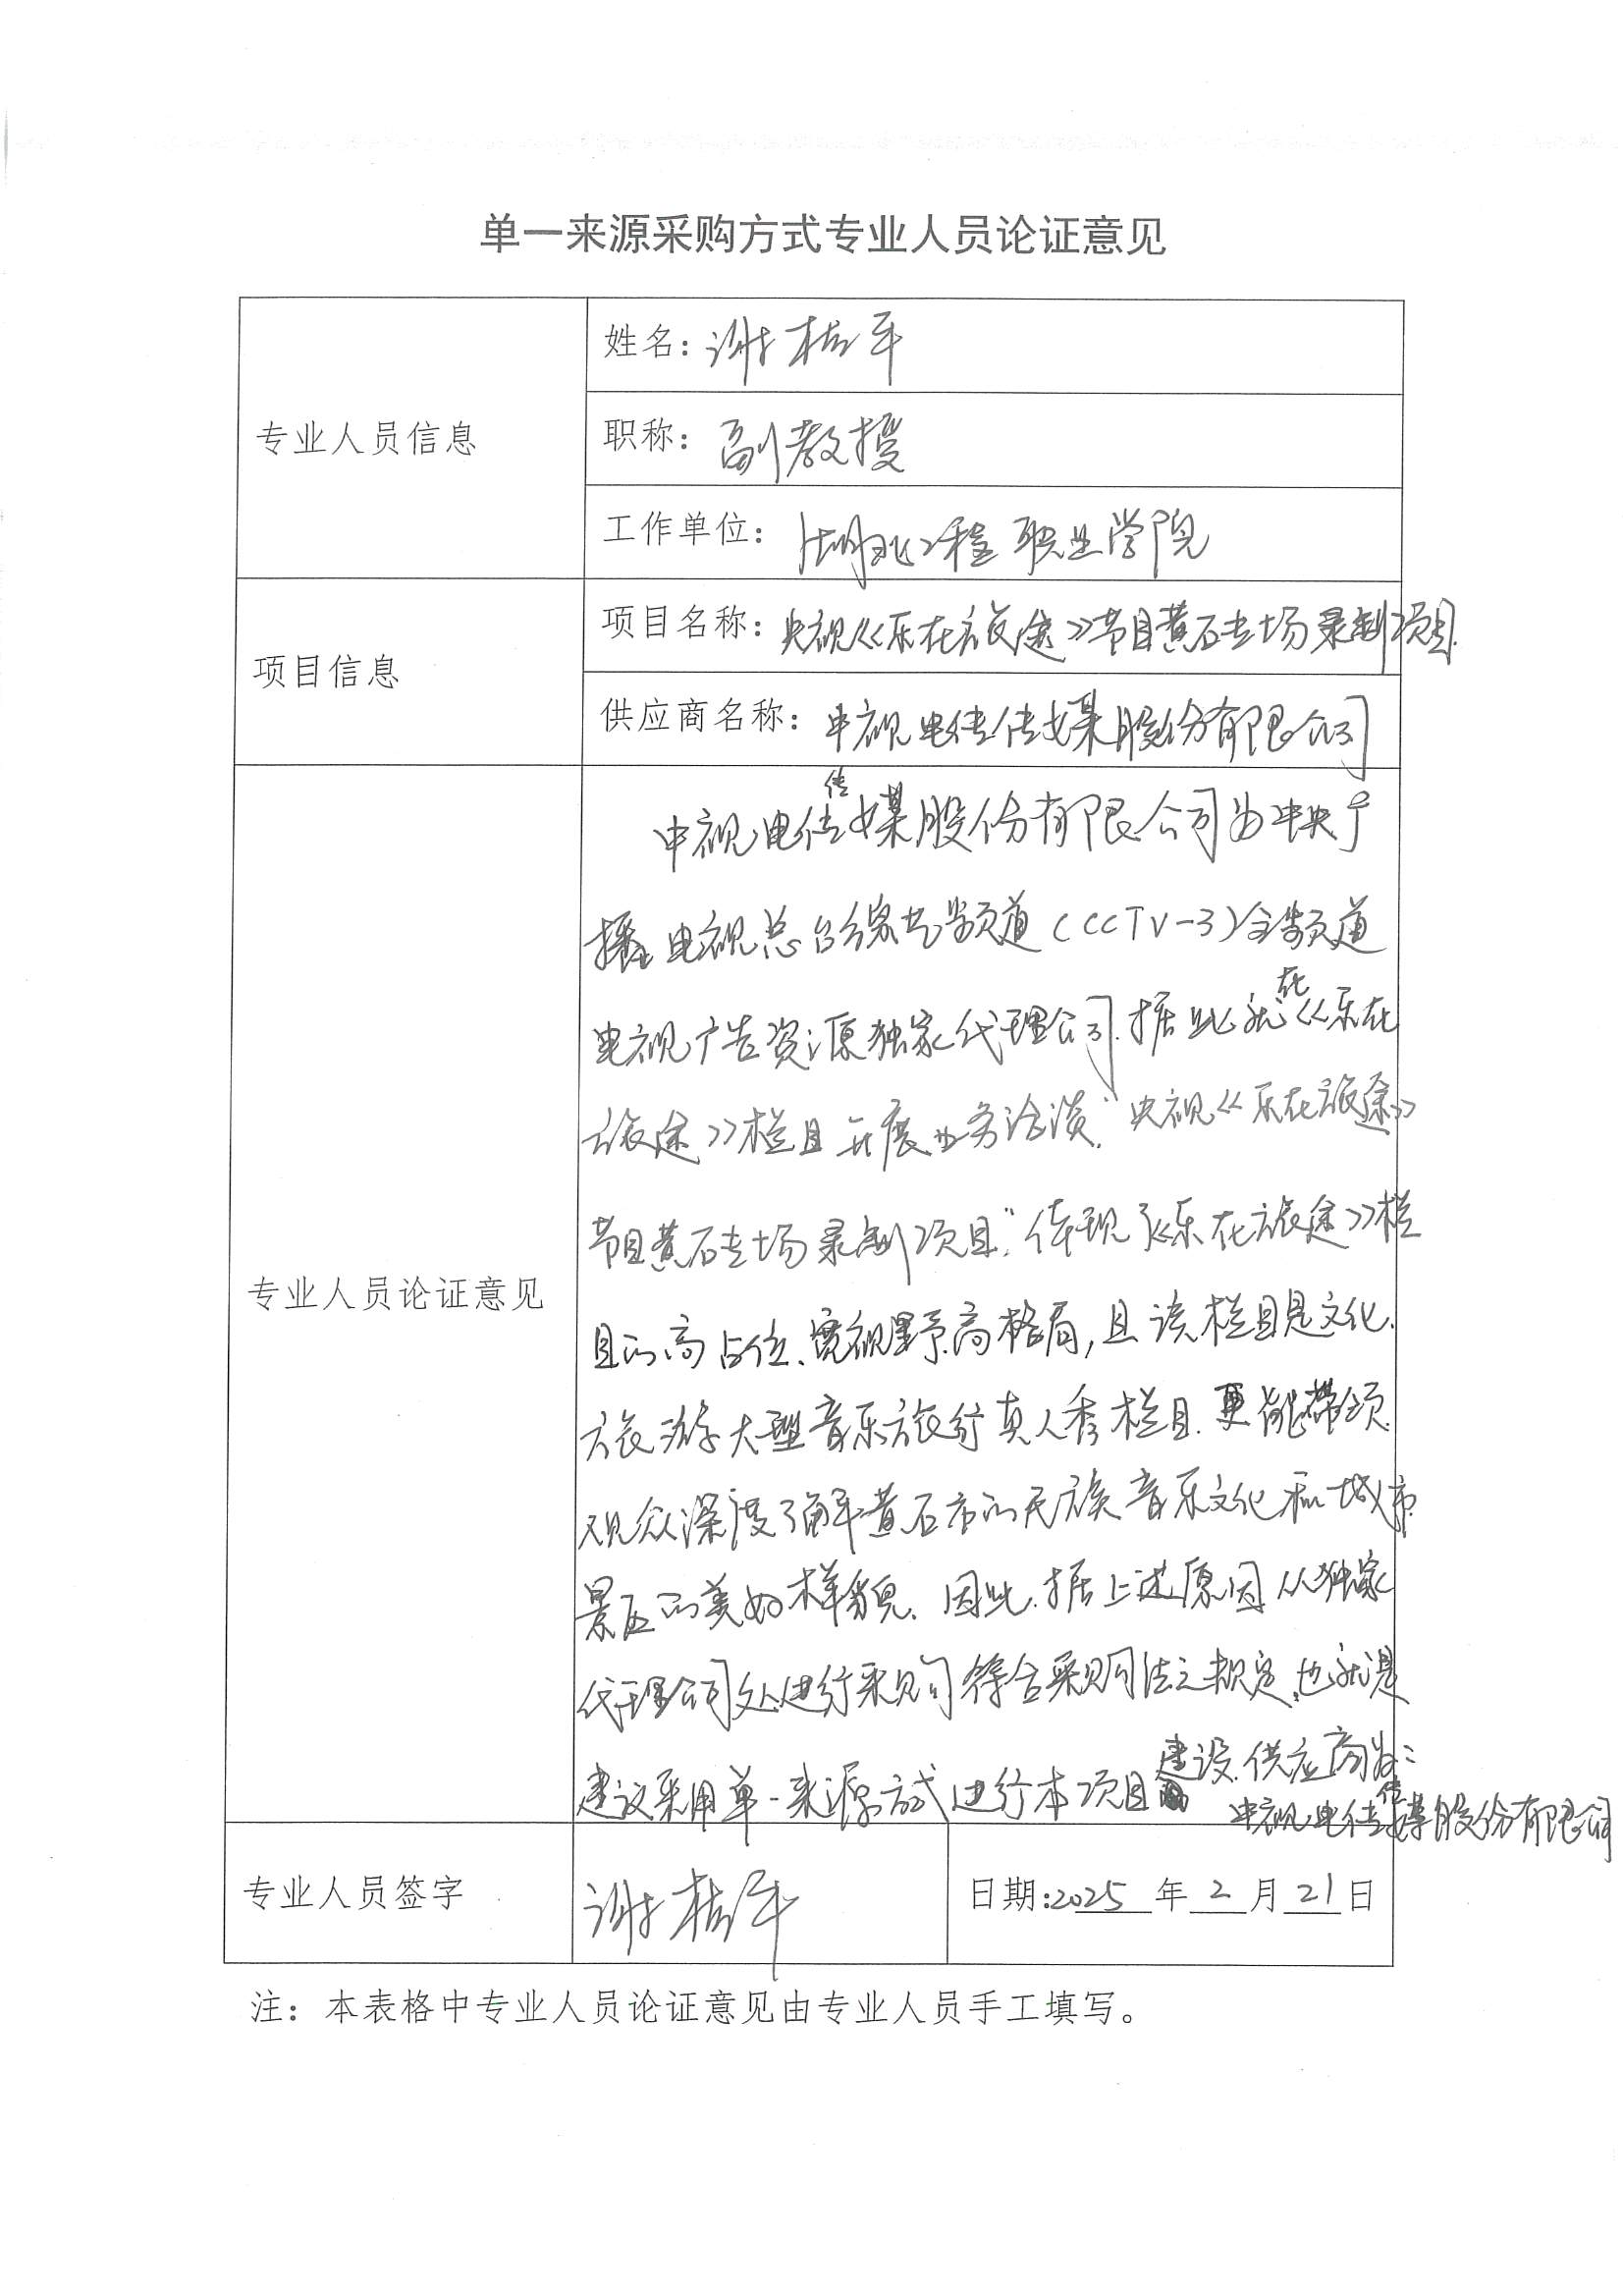 单一来源采购方式专业人员论证意见
专业人员信息
姓名：谢桔平
职称：副教授
工作单位：湖北工程职业学院
项目信息
项目名称：央视《乐在旅途》节目黄石专场录制项目.
供应商名称：中视电传传媒股份有限公司
专业人员论证意见
中视电传传媒股份有限公司为中央广
播电视总台综艺频道（CCTV-3）全频道
电视广告资源独家代理公司.据此就在《乐在
旅途》栏目开展业务洽谈.“央视《乐在旅途》
节目黄石专场录制项目”，体现了《乐在旅途》栏
目的高占位、宽视野、高格局，且该栏目是文化.
旅游大型音乐旅行真人秀栏目.更能带领
观众深度了解黄石市的民族音乐文化和城市
景区的美好样貌.因此.据上述原因从独家
代理公司处进行采购符合采购法之规定，也就是
建议采用单一来源方式进行本项目建设.供应商为：
中视电传传媒股份有限公司
专业人员签字
谢桔平
日期:2025年2月21日
注：本表格中专业人员论证意见由专业人员手工填写。